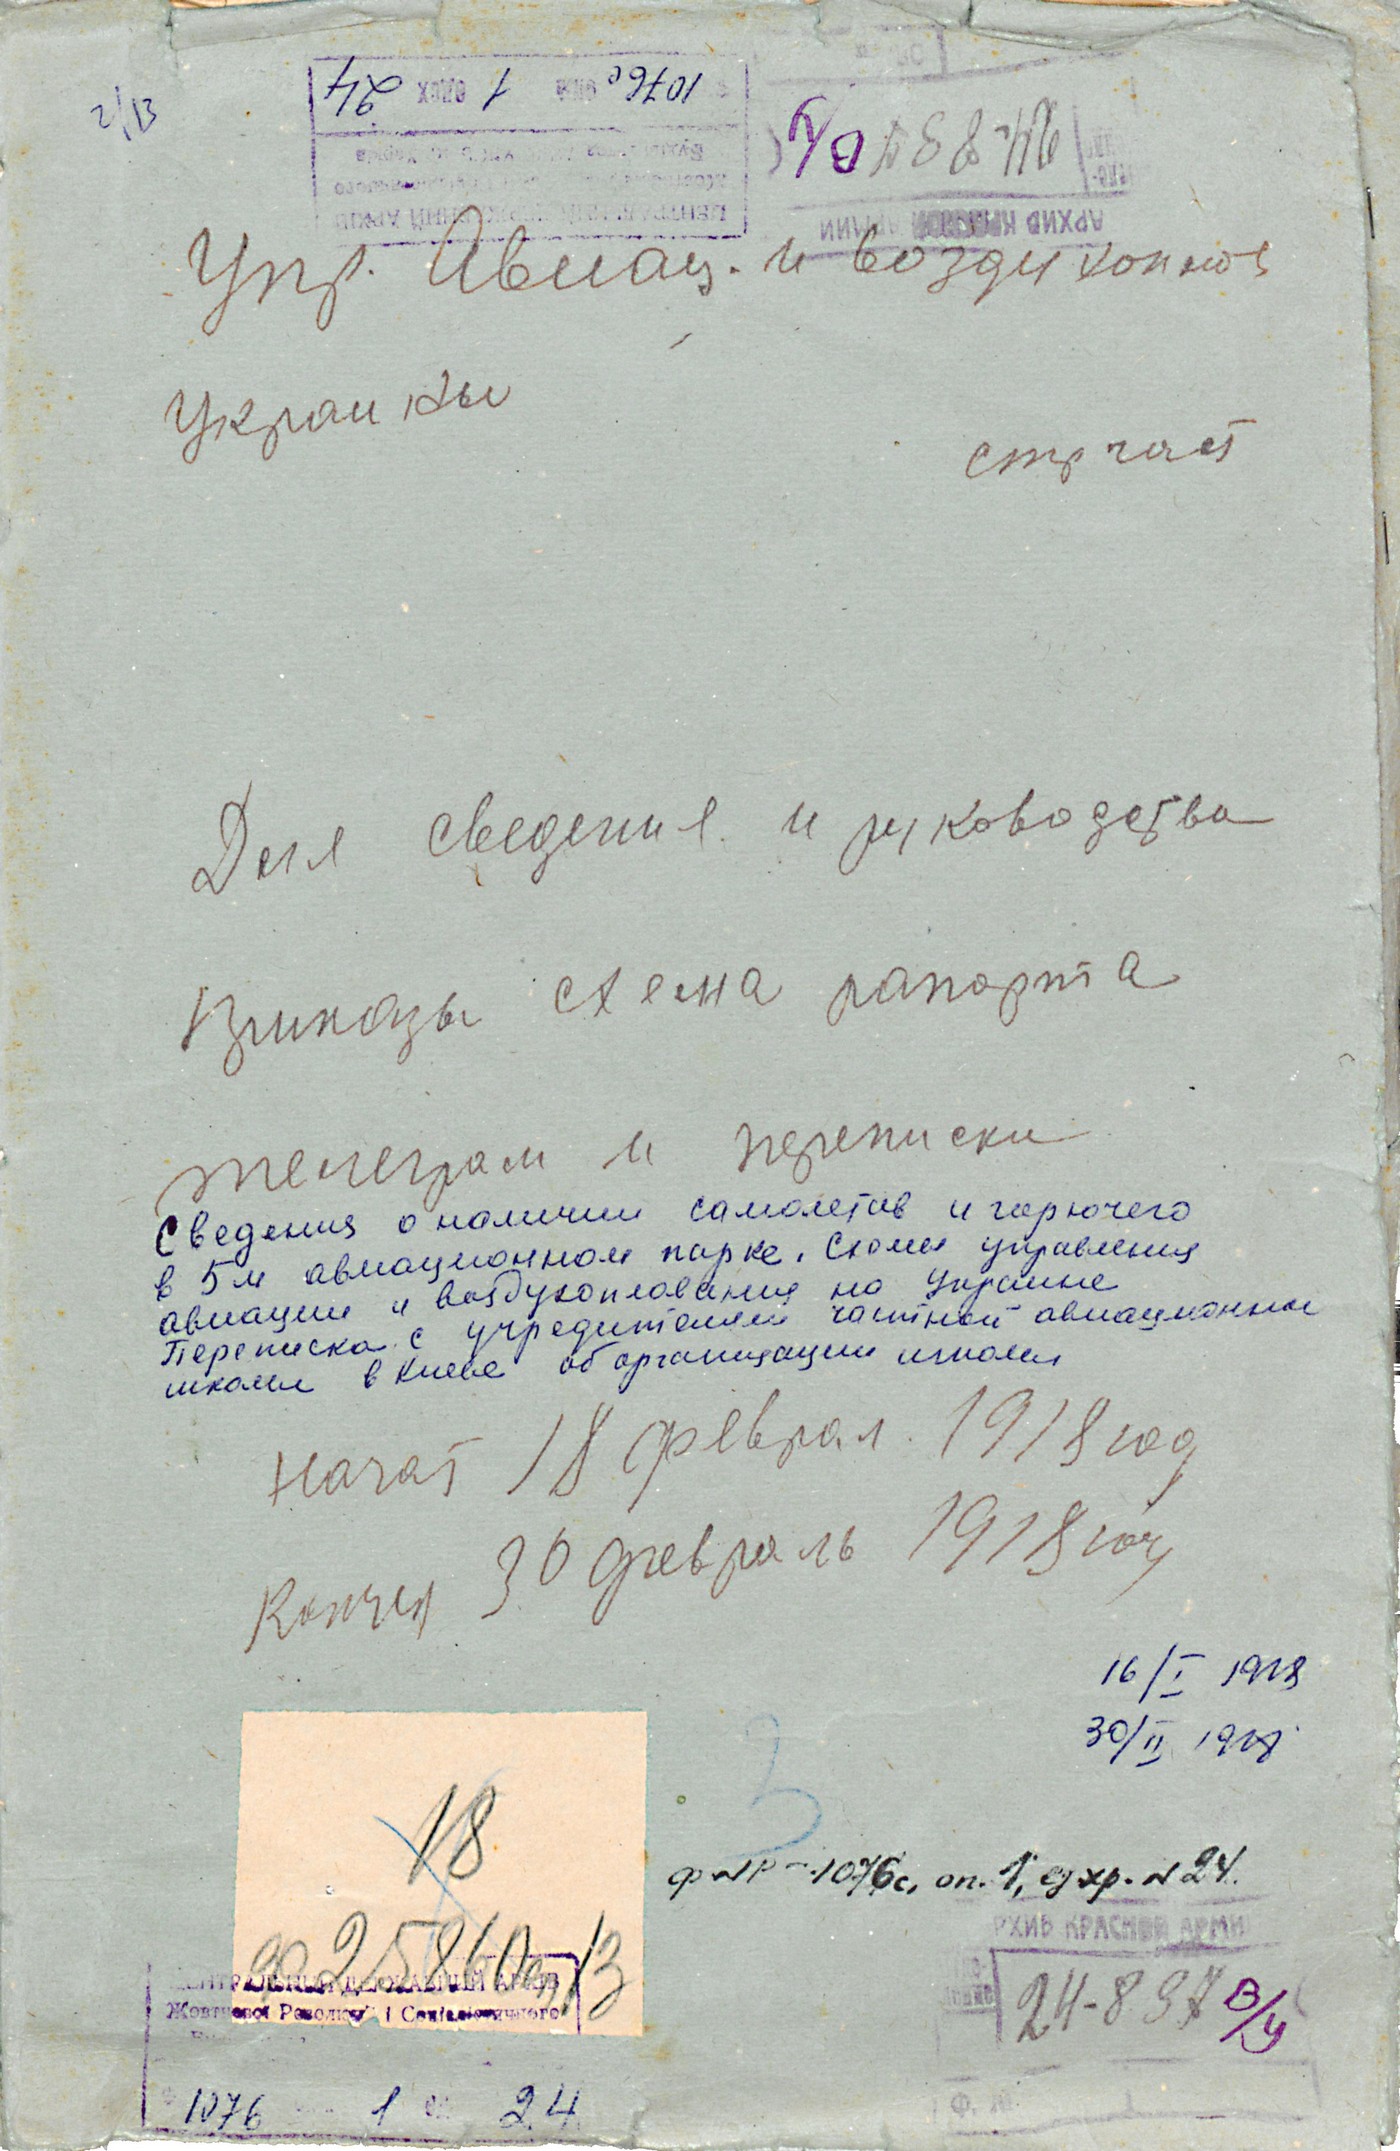 2/13
1076с оп. 1 од.зх. 24
ЦЕНТРАЛЬНИЙ ДЕРЖАВНИЙ АРХІВ
АРХИВ КРАСНОЙ АРМИИ
24-837 В/у
Упр. Авиац. и воздухоплов
Украины
стр част
Для сведения и руководства
Приказы схема рапорта
телеграм и переписки
Сведения о наличии самолетов и горючего
в 5м авиационном парке. Схемы управления
авиации и воздухоплавания на Украине
Переписка с учредителями частной авиационной
школы в Киеве об организации школы
Начат 18 феврал. 1918 год
Кончен 30 февраль 1918 году
16/I 1918
30/II 1918
18
3
ф №Р-1076с, оп. 1, ед хр. № 24.
258610
ЦЕНТРАЛЬНИЙ ДЕРЖАВНИЙ АРХІВ
Жовтневої Революції і Соціалістичного
1076 1 од 24
РХИВ КРАСНОЙ АРМИ
24-837 В/у
Ф. №